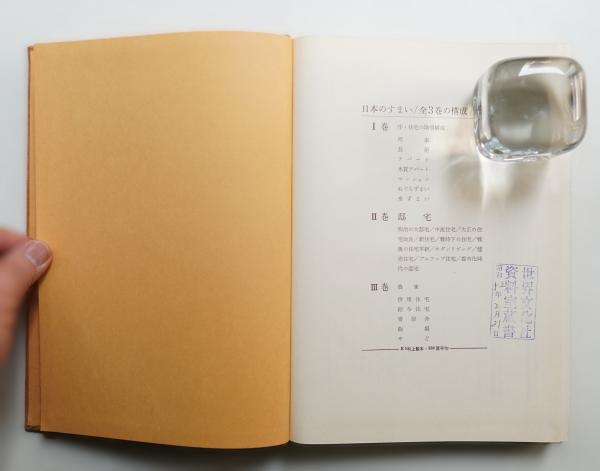 日本のすまい/全3巻の構成
I巻
町家
長屋
アパート
木賃アパート
マンション
ねぐらずまい
水ずまい
II巻 邸宅
明治の大邸宅/中流住宅/大正の住
宅改良/新住宅/戦時下の住宅/戦
後の住宅革新/モダンリビング/
造住宅/プレファブ住宅/都市化時
代の邸宅
III巻 農家
併用住宅
給与住宅
寄宿舎
飯場
やど
世界文化社
資料室蔵書